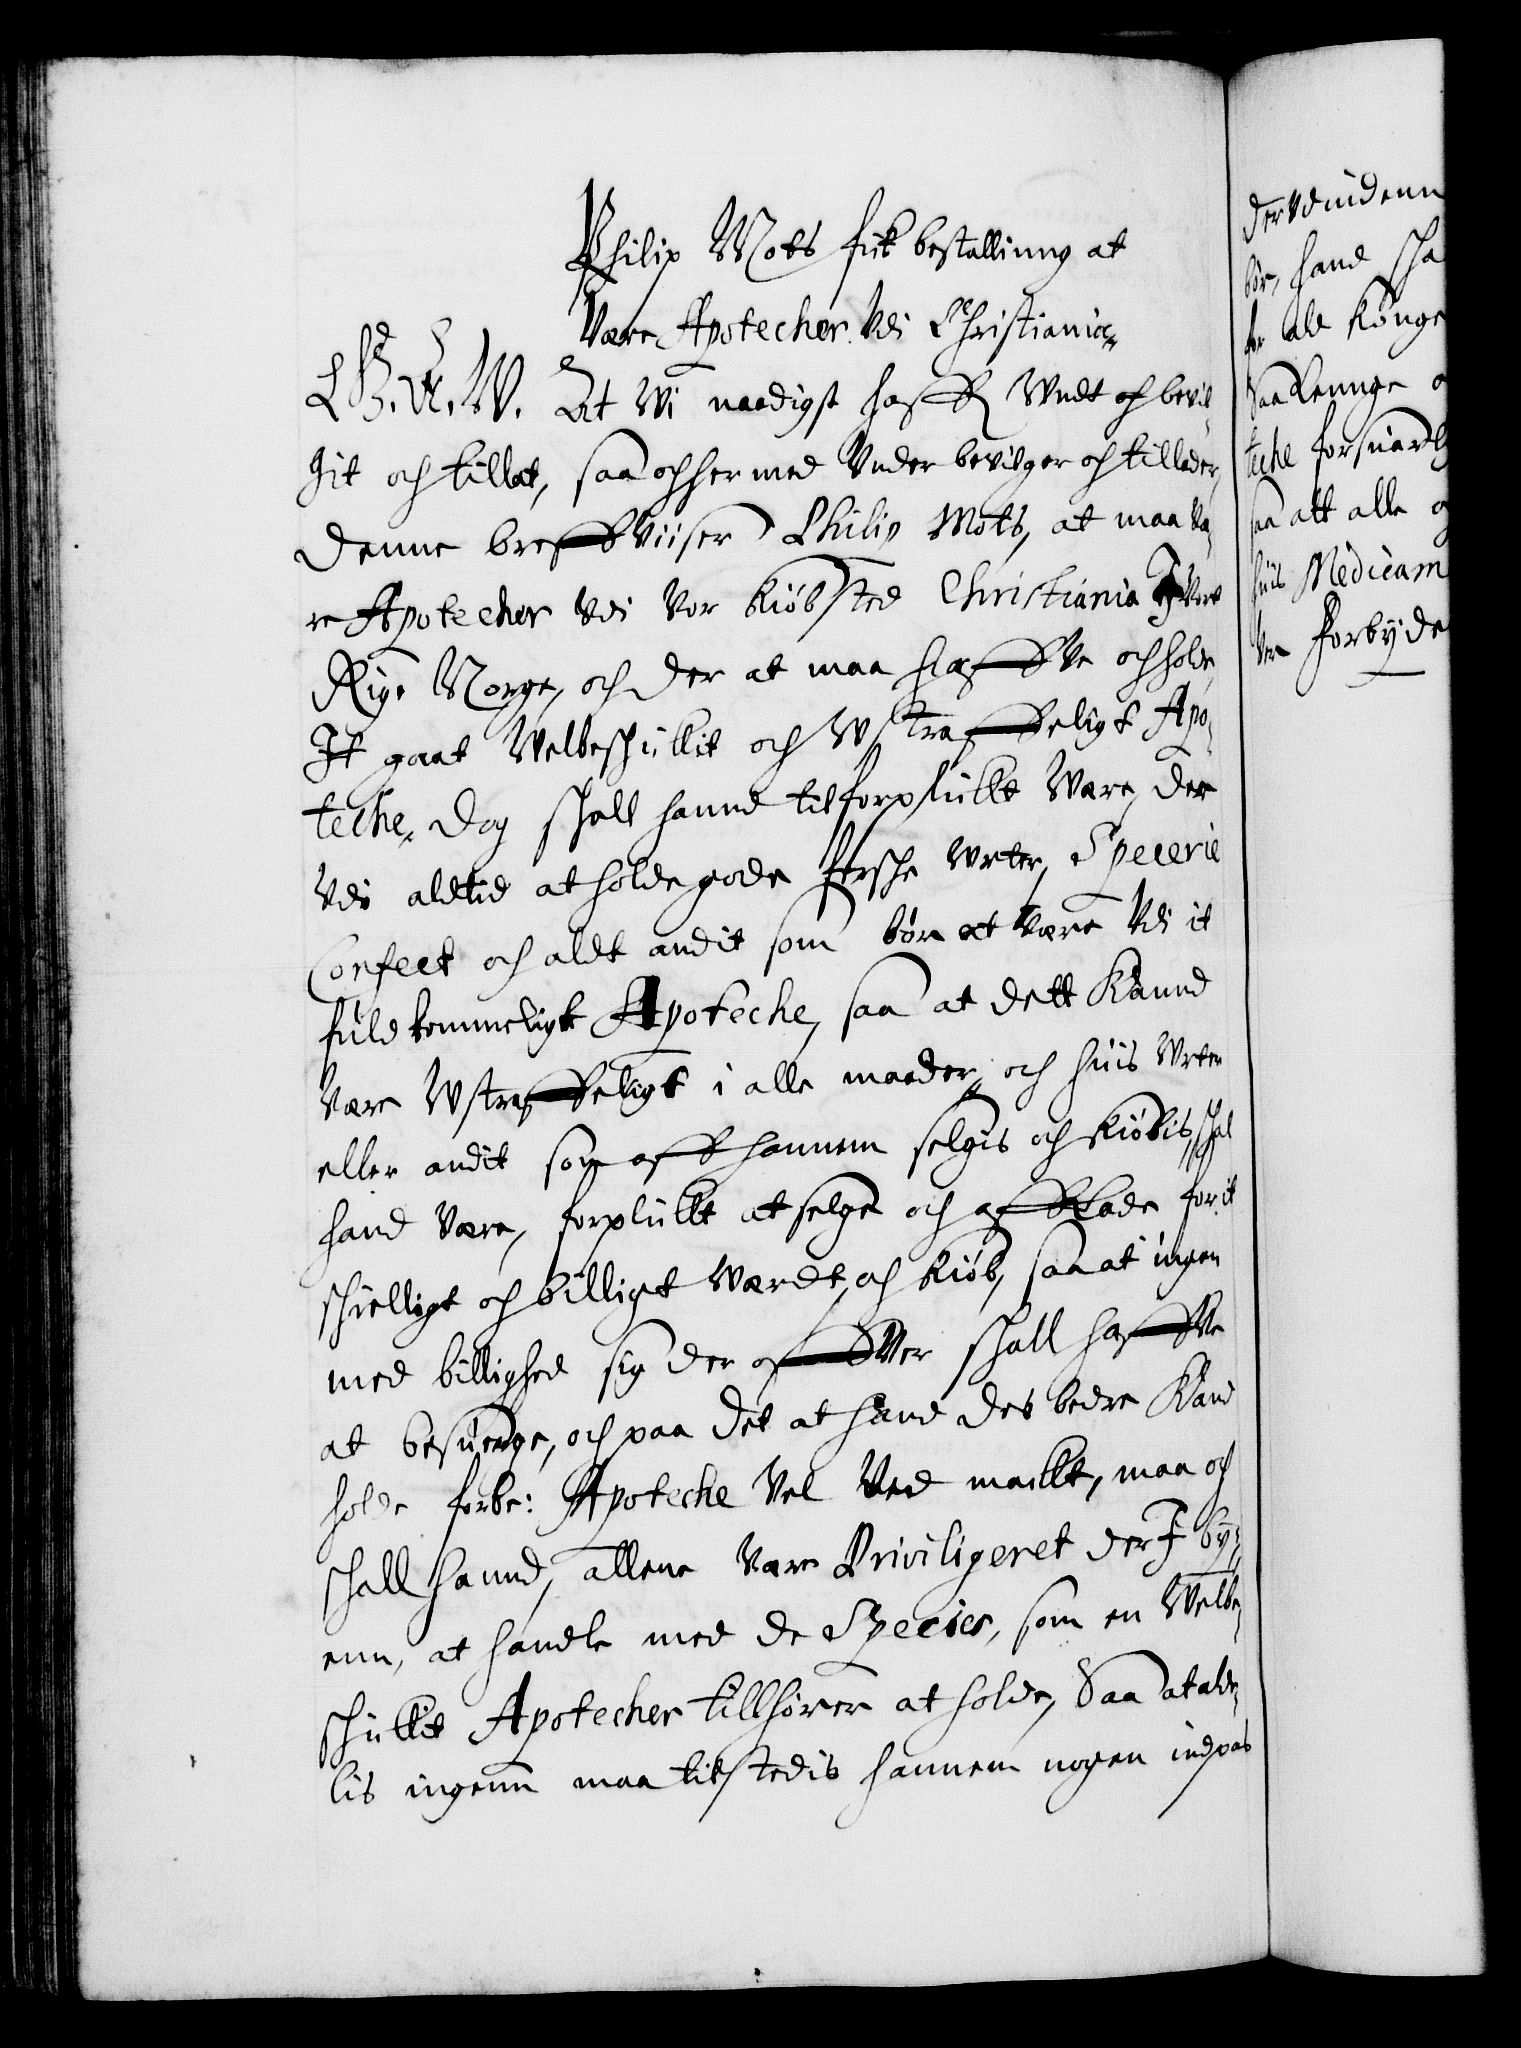 Philip Mots fik bestallinng at
Være Apotecher Vdi Christiania
C. G. A. W. At Wi naadigst haffr Wndt och bevil
git och tillat, saa och her med Vnder bevilger och tillader,
denne breffViiser Philip Mots, at maa Væ,
re Apotecher Vdi Vor Kiøbsted Christiania J Vort
Rige Norge, och der at maa haffVe och holde,
It gaat Welbeschickit och Wstraffeligt Apo,
teche, Dog schall hannd tilforplickt Være, der
Vdi altid at holde gode fersche Vrter, Specerie
Confect och aldt andit som bør at være Vdi it
fuldkommeligt Apoteche, saa at dett Kannd
Være Wstraffeligt i alle maader, och huis Vrter
eller andit som aff hannem selgis och Kiøbis, schal
hand Være, forplickt at selge och afflade for it
schielligt och billigt Værdt, och Kiøb, saa at ingen
med billighed sig der offVer schall haffVe
at besuerge, och paa det at hand des bedre Kand
holde forbe: Apoteche Vel Ved mackt, maa och
schall hannd, allene Være Priviligeret der J by,
enn, at handle med de Species, som en Welbe,
schickit Apotecher tillhører at holde, Saa at alde,
lis ingenn maa tilstedis hannem nogen indpas
der Vdi
bør, hand scha
for all Konge
Saa Lennge
teche forsuarl
saa att alle
huis Medicam
Forbyde